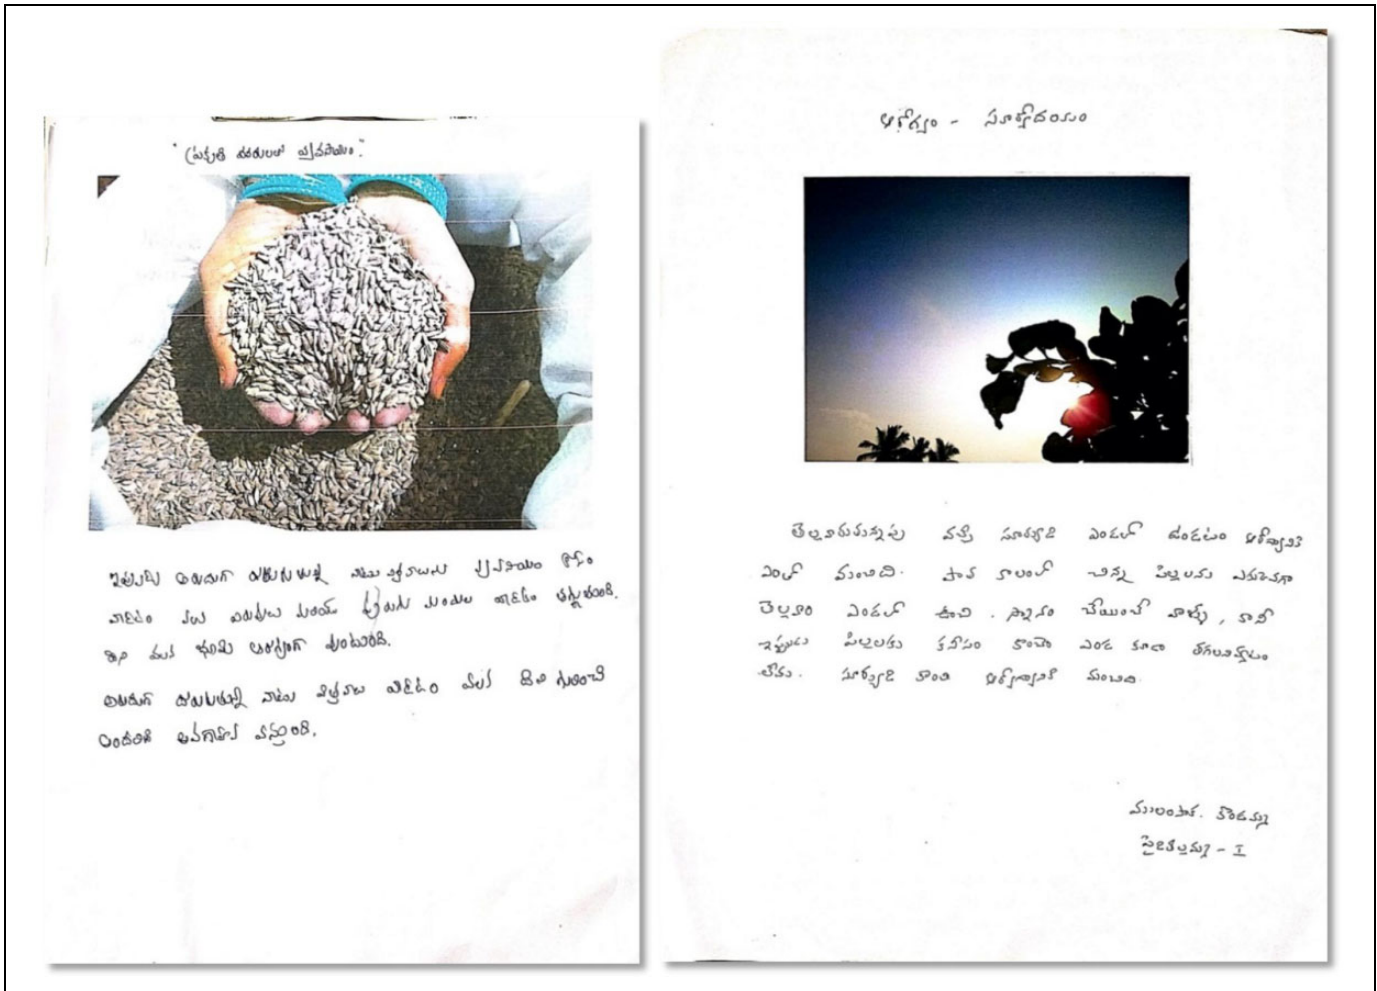 "ప్రకృతి వనరులలో వ్యవసాయం."
ఇప్పుడు అరుదుగా దొరుకుతున్న నాటు విత్తనాలను వ్యవసాయం కోసం
వాడటం వలు ఎరువులు మరియు పురుగు మందుల వాడకం తగ్గుతుంది.
దీని వలన భూమి ఆరోగ్యంగా వుంటుంది.
అరుదుగా దొరుకుతున్న నాటు విత్తనాలు వాడకం వలన దీని గురించి
అందరికి అవగాహన వస్తుంది.
ఆరోగ్యం - సూర్యోదయం
తెల్లవారుతున్నపుడు వచ్చే సూర్యుడి ఎండలో ఉండటం ఆరోగ్యానికి
ఎంతో మంచిది. పాత కాలంలో చిన్న పిల్లలను ఎక్కువగా
తెల్లవారి ఎండలో ఉంచి. స్నానం చేయించే వాళ్ళు, కాని
ఇప్పుడు పిల్లలకు కనీసం కొంచెం ఎండ కూడా తగలనివ్వడం
లేదు. సూర్యుడి కాంతి ఆరోగ్యానికి మంచిది.
కొండమ్మ
- I